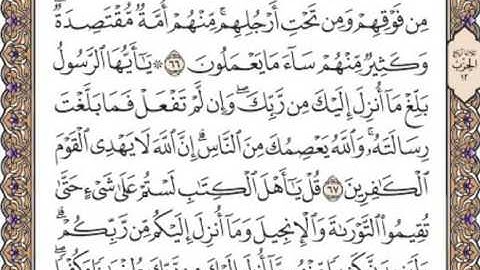 مِن فَوْقِهِمْ وَمِن تَحْتِ أَرْجُلِهِم ۚ مِّنْهُمْ أُمَّةٌ مُّقْتَصِدَةٌ ۖ
وَكَثِيرٌ مِّنْهُمْ سَاءَ مَا يَعْمَلُونَ ٦٦ ۞ يَٰٓأَيُّهَا ٱلرَّسُولُ
بَلِّغْ مَآ أُنزِلَ إِلَيْكَ مِن رَّبِّكَ ۖ وَإِن لَّمْ تَفْعَلْ فَمَا بَلَّغْتَ
رِسَالَتَهُۥ ۚ وَٱللَّهُ يَعْصِمُكَ مِنَ ٱلنَّاسِ ۗ إِنَّ ٱللَّهَ لَا يَهْدِى ٱلْقَوْمَ
ٱلْكَٰفِرِينَ ٦٧ قُلْ يَٰٓأَهْلَ ٱلْكِتَٰبِ لَسْتُمْ عَلَىٰ شَىْءٍ حَتَّىٰ
تُقِيمُوا۟ ٱلتَّوْرَىٰةَ وَٱلْإِنجِيلَ وَمَآ أُنزِلَ إِلَيْكُم مِّن رَّبِّكُمْ ۗ
الحزب
١٢